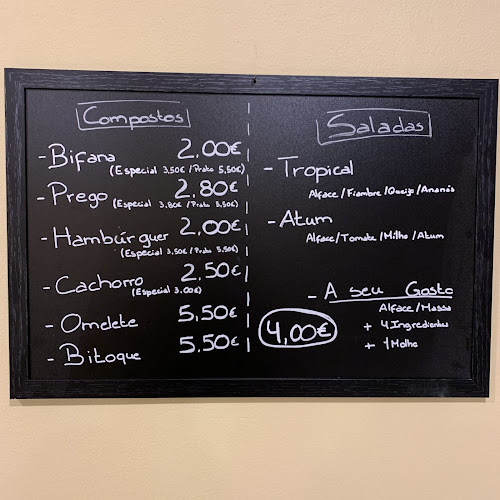 Compostos
- Bifana 2,00€
(Especial 3,50€ / Prato 5,50€)
- Prego 2,80€
(Especial 3,80€ / Prato 5,50€)
- Hambúrguer 2,00€
(Especial 3,50€ / Prato 5,50€)
- Cachorro 2,50€
(Especial 3,00€)
- Omelete 5,50€
- Bitoque 5,50€
Saladas
- Tropical
Alface / Fiambre / Queijo / Ananás
- Atum
Alface / Tomate / Milho / Atum
- A seu Gosto
Alface / Massa
+ 4 Ingredientes
+ 1 Molho
4,00€